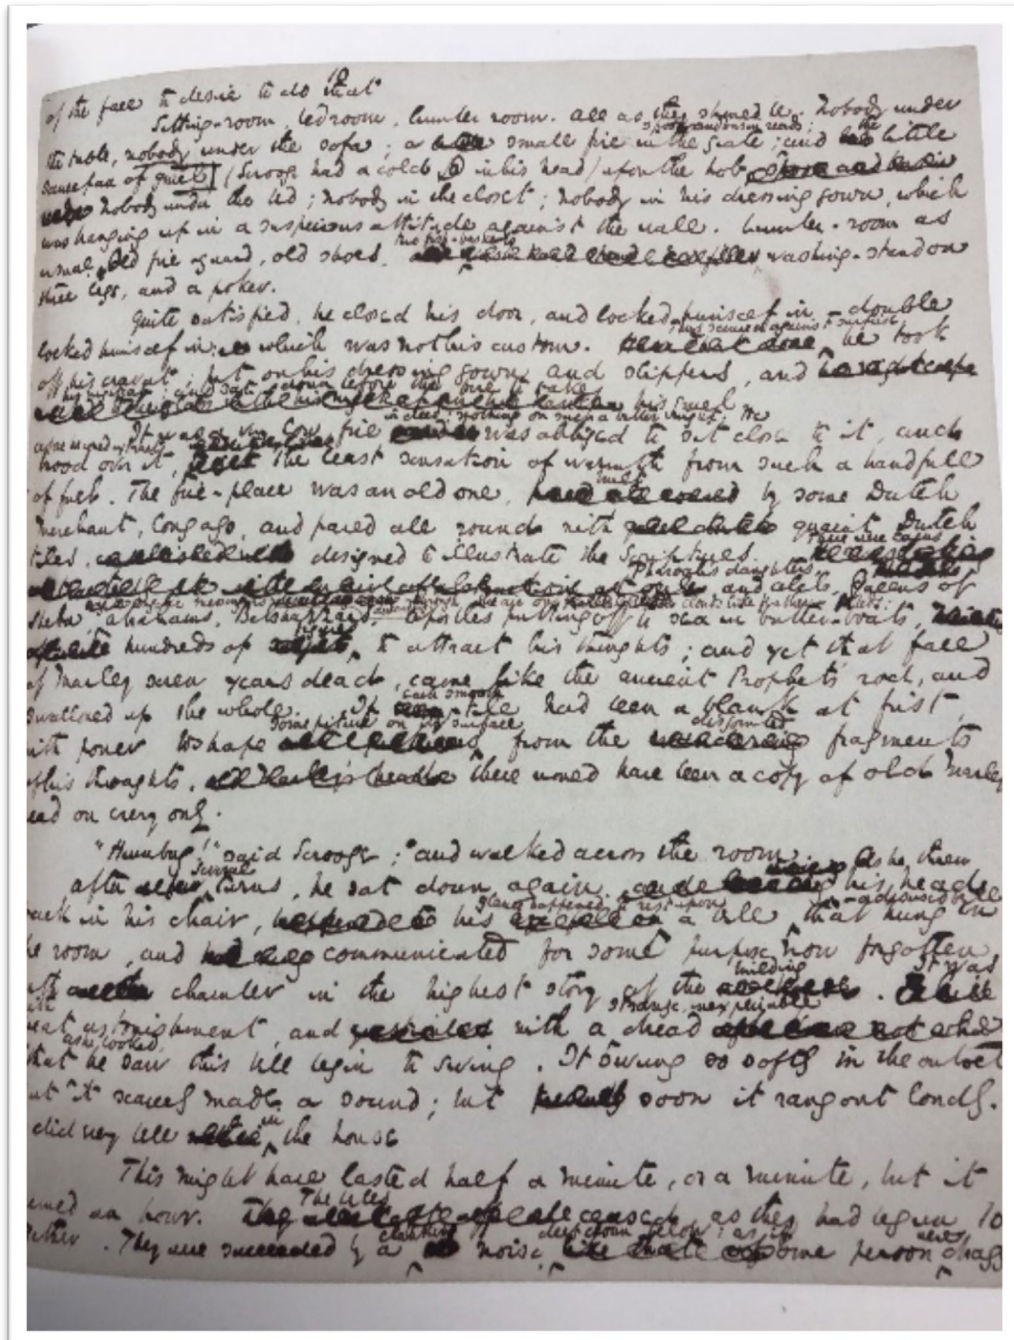 of the face to desire to do that
Sitting-room, bed room, lumber room. all as they should be. Nobody under
the table, nobody under the sofa; a small fire in the grate; spoon and basin ready; and the little
saucepan of gruel (Scrooge had a cold in his head) upon the hob.
Nobody under the bed; nobody in the closet; nobody in his dressing gown, which
was hanging up in a suspicious attitude against the wall. Lumber-room as
usual. Old fire-guard, old shoes, two fish-baskets, washing-stand on
three legs, and a poker.
Quite satisfied, he closed his door, and locked himself in; double
locked himself in; which was not his custom. Thus secured against surprise he took
off his cravat; put on his dressing gown and slippers, and
his nightcap; and sat down before the fire to take his gruel
It was a very low fire indeed; nothing on such a bitter night. He was obliged to sit close to it, and
brood over it, the least sensation of warmth from such a handfull
of fuel. The fire-place was an old one, built by some Dutch
Merchant, long ago, and paved all round with quaint Dutch
tiles, designed to illustrate the Scriptures. There were Cains
Pharoah's daughters, and Abels, Queens of
Sheba, Abrahams, Belshazzars, Apostles putting off to sea in butter-boats,
hundreds of figures, to attract his thoughts; and yet that face
of Marley seven years dead, came like the ancient Prophet's rod, and
swallowed up the whole. If each smooth tile had been a blank at first,
with power to shape some picture on its surface from the disjointed fragments
of his thoughts, there would have been a copy of old Marley
head on every one.
"Humbug!" said Scrooge; and walked across the room.
after several turns, he sat down again. As he threw his head
back in his chair, his glance happened to rest upon a bell, a disused bell that hung in
the room, and communicated for some purpose now forgotten
with a chamber in the highest story of the building. It was
with great astonishment, and with a strange inexplicable dread
that as he looked, he saw this bell begin to swing. It swung so softly in the outset
that it scarcely made a sound; but soon it rang out loudly.
did every bell in the house
This might have lasted half a minute, or a minute, but it
seemed an hour. The bells ceased as they had begun, to
gether. They were succeeded by a clanking noise, deep down below; as if some person were dragg